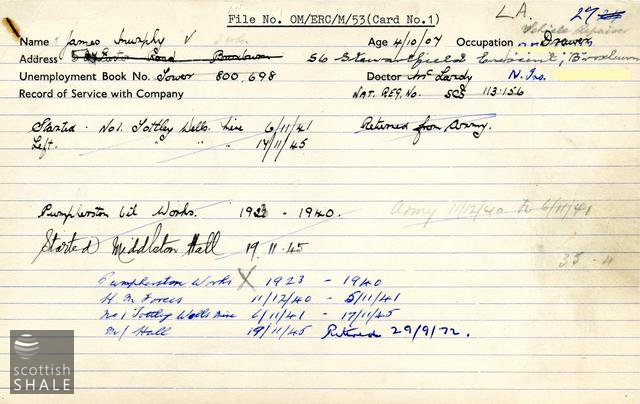 File No. OM/ERC/M/53(Card No.1)
L.A. 27
Vehicle Repairer
Name James Murphy V Age 4/10/07 Occupation Drawer
Address Road Broxburn 56 Stewartfield Crescent, Broxburn
Unemployment Book No. Tower 800,698 Doctor Mr Lardy N. Ins.
Record of Service with Company NAT. REG. No. SCS 113.156
Started. No 1. Tottley Wells. Mine 6/11/41 Returned from Army.
Left. " " " 17/11/45
Pumpherston Oil Works. 1923 - 1940. Army 11/12/40 to 6/11/41
Started Middleton Hall 19.11.45
35 - 4
Pumpherston Works X 1923 - 1940
H. M Forces 11/12/40 - 5/11/41
No 1 Tottley Wells Mine 6/11/41 - 17/11/45
M/ Hall 19/11/45 Retired 29/9/72.
scottish
SHALE